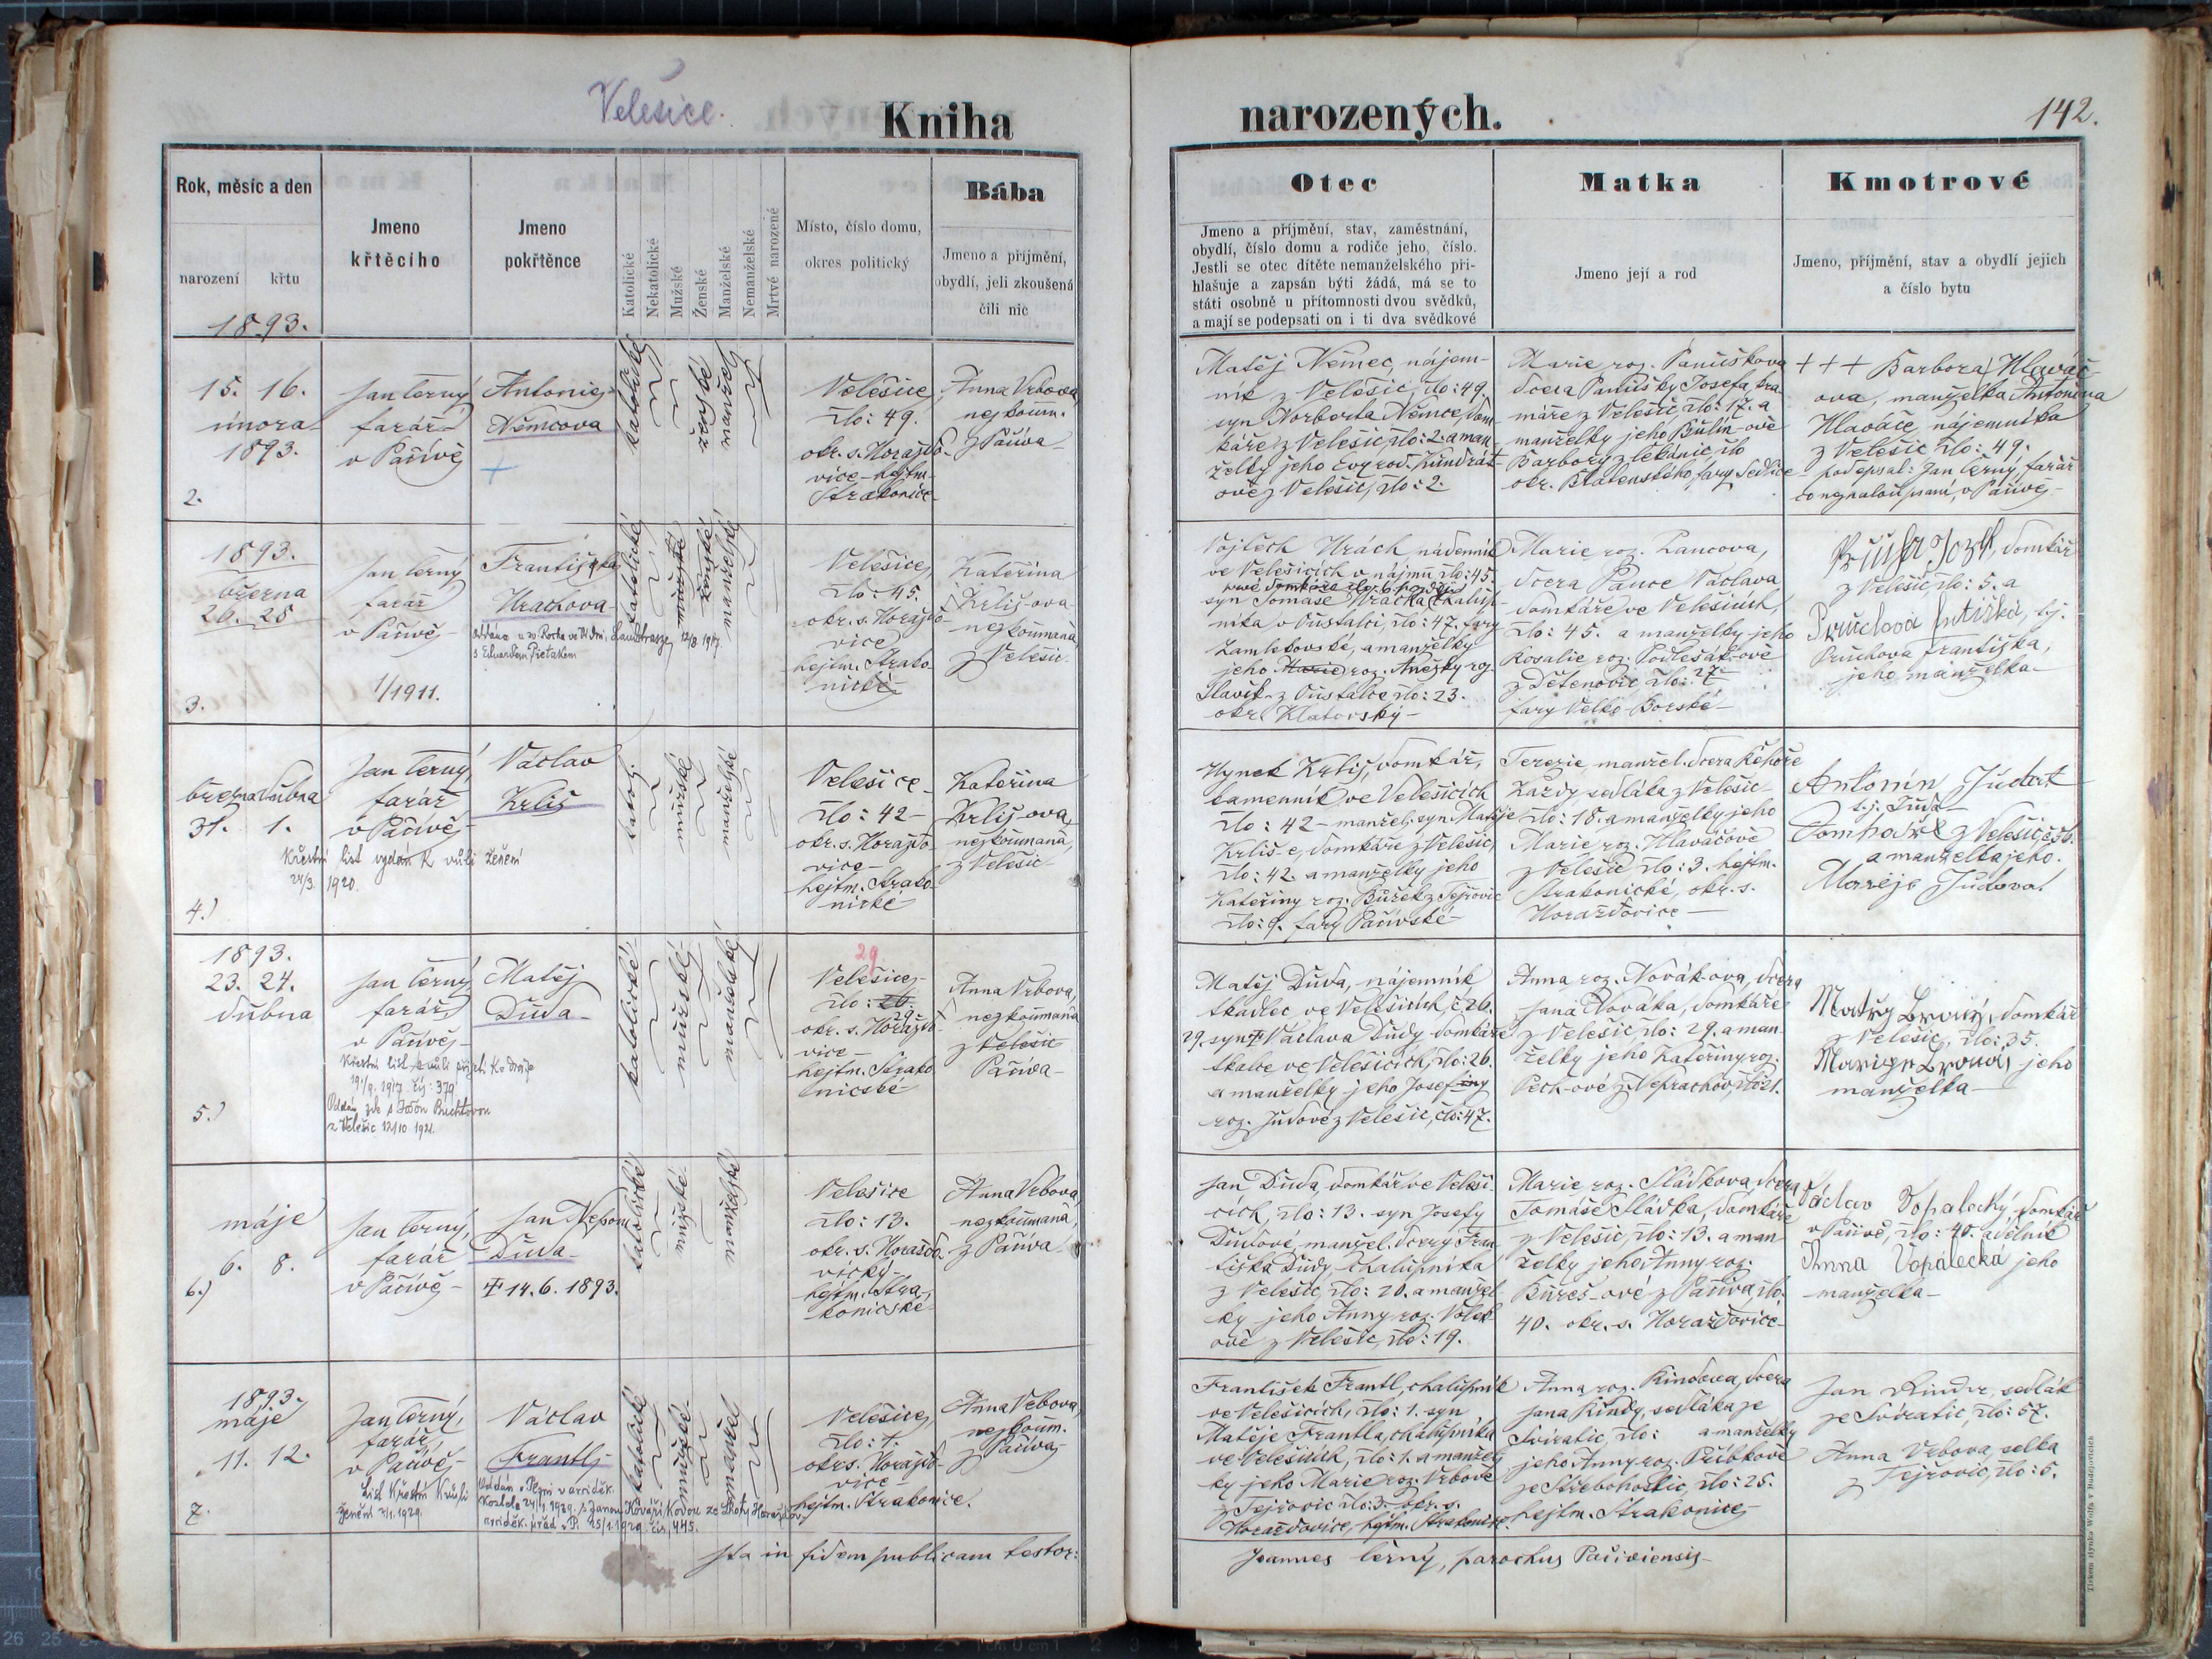 Velešice.
Kniha
narozených.
142.
Rok, měsíc a den
narození křtu
1893.
Jmeno
křtěcího
Jmeno
pokřtěnce
Katolické
Nekatolické
Mužské
Ženské
Manželské
Nemanželské
Mrtvé narozené
Místo, číslo domu,
okres politický
Bába
Jmeno a příjmění,
obydlí, jeli zkoušená
čili nic
Otec
Jmeno a příjmění, stav, zaměstnání,
obydlí, číslo domu a rodiče jeho, číslo.
Jestli se otec dítěte nemanželského při-
hlašuje a zapsán býti žádá, má se to
státi osobně u přítomnosti dvou svědků,
a mají se podepsati on i ti dva svědkové
Matka
Jmeno její a rod
Kmotrové
Jmeno, příjmění, stav a obydlí jejich
a číslo bytu
15. 16.
února
1893.
2.
Jan Černý
farář
v Pačivě
Antonie
Němcova
katolické
ženské
manžel.
Velešice
člo: 49.
okr. s. Horažďo-
vice - hejtm.
Strakonice
Anna Vrbova
nezkoum.
z Pačiva
Matěj Němec, nájem-
ník z Velešic, člo: 49.
syn Norberta Němce, dom-
káře z Velešic, člo: 2. a man-
želky jeho Evy rod. Kundrát-
ové z Velešic, člo: 2.
Marie roz. Panušková
dcera Panušky Josefa, kra-
máře z Velešic, člo: 17. a
manželky jeho
Barbory z
okr. Blatenského, fary Sedlice
+ + + Barbora Hlaváč-
ova, manželka Antonína
Hlaváče, nájemníka
z Velešic člo: 49.
podepsal: Jan Černý, farář
co neznalou psaní, v Pačivě
1893.
března
26. 28
3.
Jan Černý
farář
v Pačivě
1/1911.
Františka
Hrachova
Oddána u sv. Rocha ve Vídni, Landstrasse, 12/8 1917
s Eduardem Pietakem
katolické
mužské
ženské
manželské
Velešice,
člo: 45.
okr. s. Horažďo-
vice
hejtm. Strako-
nické
Kateřina
Krliš-ova
nezkoumaná,
z Velešic.
Vojtěch Hrách, nádenník
ve Velešicích v nájmu člo: 45.
syn Tomáše Hracha, chalup-
níka v Pústalci, člo: 47. fary
a manželky
jeho Marie roz. Anežky roz.
Slavík z Pústalce člo: 23.
okr. Klatovský
Marie roz. Pancova,
dcera Pance Václava
domkáře ve Velešicích,
člo: 45. a manželky jeho
Rosalie roz. Podlešák-ové
z Dětenovic člo: 27
fary Velko-Borské
domkář
z Velešic, člo: 5. a
Průchova Františka,
jeho manželka
března dubna
31. 1.
4.)
Jan Černý,
farář
v Pačivě
Křestní list vydán k vůli ženění
24/3. 1920.
Václav
Krliš
katol.
mužské
manželské
Velešice
člo: 42
okr. s. Horažďo-
vice
hejtm. Strako-
nické
Kateřina
Krliš-ova,
nezkoumaná,
z Velešic
Hynek Krliš, domkář,
kamenník ve Velešicích
člo: 42 - manžel. syn Matěje
Krliš-e, domkáře z Velešic,
člo: 42. a manželky jeho
Kateřiny roz. Bůžek z Tejřovic
člo: 9. fary Pačivské
Terezie, manžel. dcera Řehoře
Kazdy, sedláka z Velešic
člo: 18. a manželky jeho
Marie roz. Hlaváčové
z Velešic člo: 3. hejtm.
Strakonické, okr. s.
Horažďovice
Antonín
z Velešic č. 36.
a manželka jeho.
1893.
23. 24.
dubna
5.)
Jan Černý
farář
v Pačivě
Křestní list k vůli přijetí k dráze
19./9. 1917. čj: 379
Oddán zde s Buchtovou
z Velešic 12/10. 1921.
Matěj
Duda
katolické
mužské
manželské
29
Velešice
člo: 26
29.
okr. s. Horažďo-
vice
hejtm. Strako-
nické
Anna Vrbova,
nezkoumaná
z Velešic
Pačiva
Matěj Duda, nájemník
tkadlec, ve Velešicích, č. 26.
29. syn + Václava Dudy, domkáře
tkalce ve Velešicích, člo: 26.
a manželky jeho Josefiny
roz. Judové z Velešic, člo: 47.
Anna roz. Novák-ova, dcera
Jana Nováka, domkáře
z Velešic, člo: 29. a man-
želky jeho Kateřiny roz.
Peck-ové z Neprachov, člo: 1.
domkář
z Velešic, člo: 35.
jeho
manželka
máje
6. 8.
6.)
Jan Černý,
farář
v Pačivě
Jan Nepom.
Duda
† 14. 6. 1893.
katolické
mužské
manželské
Velešice
člo: 13.
okr. s. Horažďo-
vický
hejtm. Stra-
konické
Anna Vrbova,
nezkoumaná,
z Pačiva.
Jan Duda, domkář ve Veleši-
cích, člo: 13. syn Josefy
Dudové, manžel. dcery Fran-
tiška Dudy, chalupníka
z Velešic, člo: 20. a manžel-
ky jeho Anny roz. Volek-
ové z Velešic, člo: 19.
Marie roz. Sládkova, dcera
Tomáše Sládka, domkáře
z Velešic, člo: 13. a man-
želky jeho Anny roz.
Bureš-ové z Pačiva, člo.
40. okr. s. Horažďovice
Václav Vopalecký, domkář
v Pačivě, člo: 40. a dělník
Anna Vopálecká jeho
manželka
1893.
máje
11. 12.
7.
Jan Černý,
farář
v Pačivě
List křestní k vůli
ženění 2/1. 1929.
Václav
Frantl
Oddán v Plzni v arciděk.
kostele 24/1. 1929. s Janou
arciděk. úřad v P. 25/1. 1929. čís. 445.
katolické
mužské
manžel
Velešice,
člo: 1.
okr. s. Horažďo-
vice
hejtm. Strakonice.
Anna Vrbova,
nezkoum.
z Pačiva
František Frantl, chalupník
ve Velešicích, člo: 1. syn
Matěje Frantla, chalupníka
ve Velešicích, člo: 1. a manžel-
ky jeho Marie roz. Vrbové
z Tejřovic člo: 3. okr. s.
Horažďovice, hejtm. Strakonice.
Anna roz. Kindlova, dcera
Jana Kindy, sedláka ze
Svíratic, člo: a manželky
jeho Anny roz. Přibkové
ze Střebohostic, člo: 25.
hejtm. Strakonice
Jan sedlák
ze Svíratic, člo: 57.
Anna Vrbova, selka
z Tejřovic, člo: 5.
Ita in fidem publicam testor:
Joannes Černý, parochus Pačiviensis
Tiskem Hynka Wolfa v Budějovicích